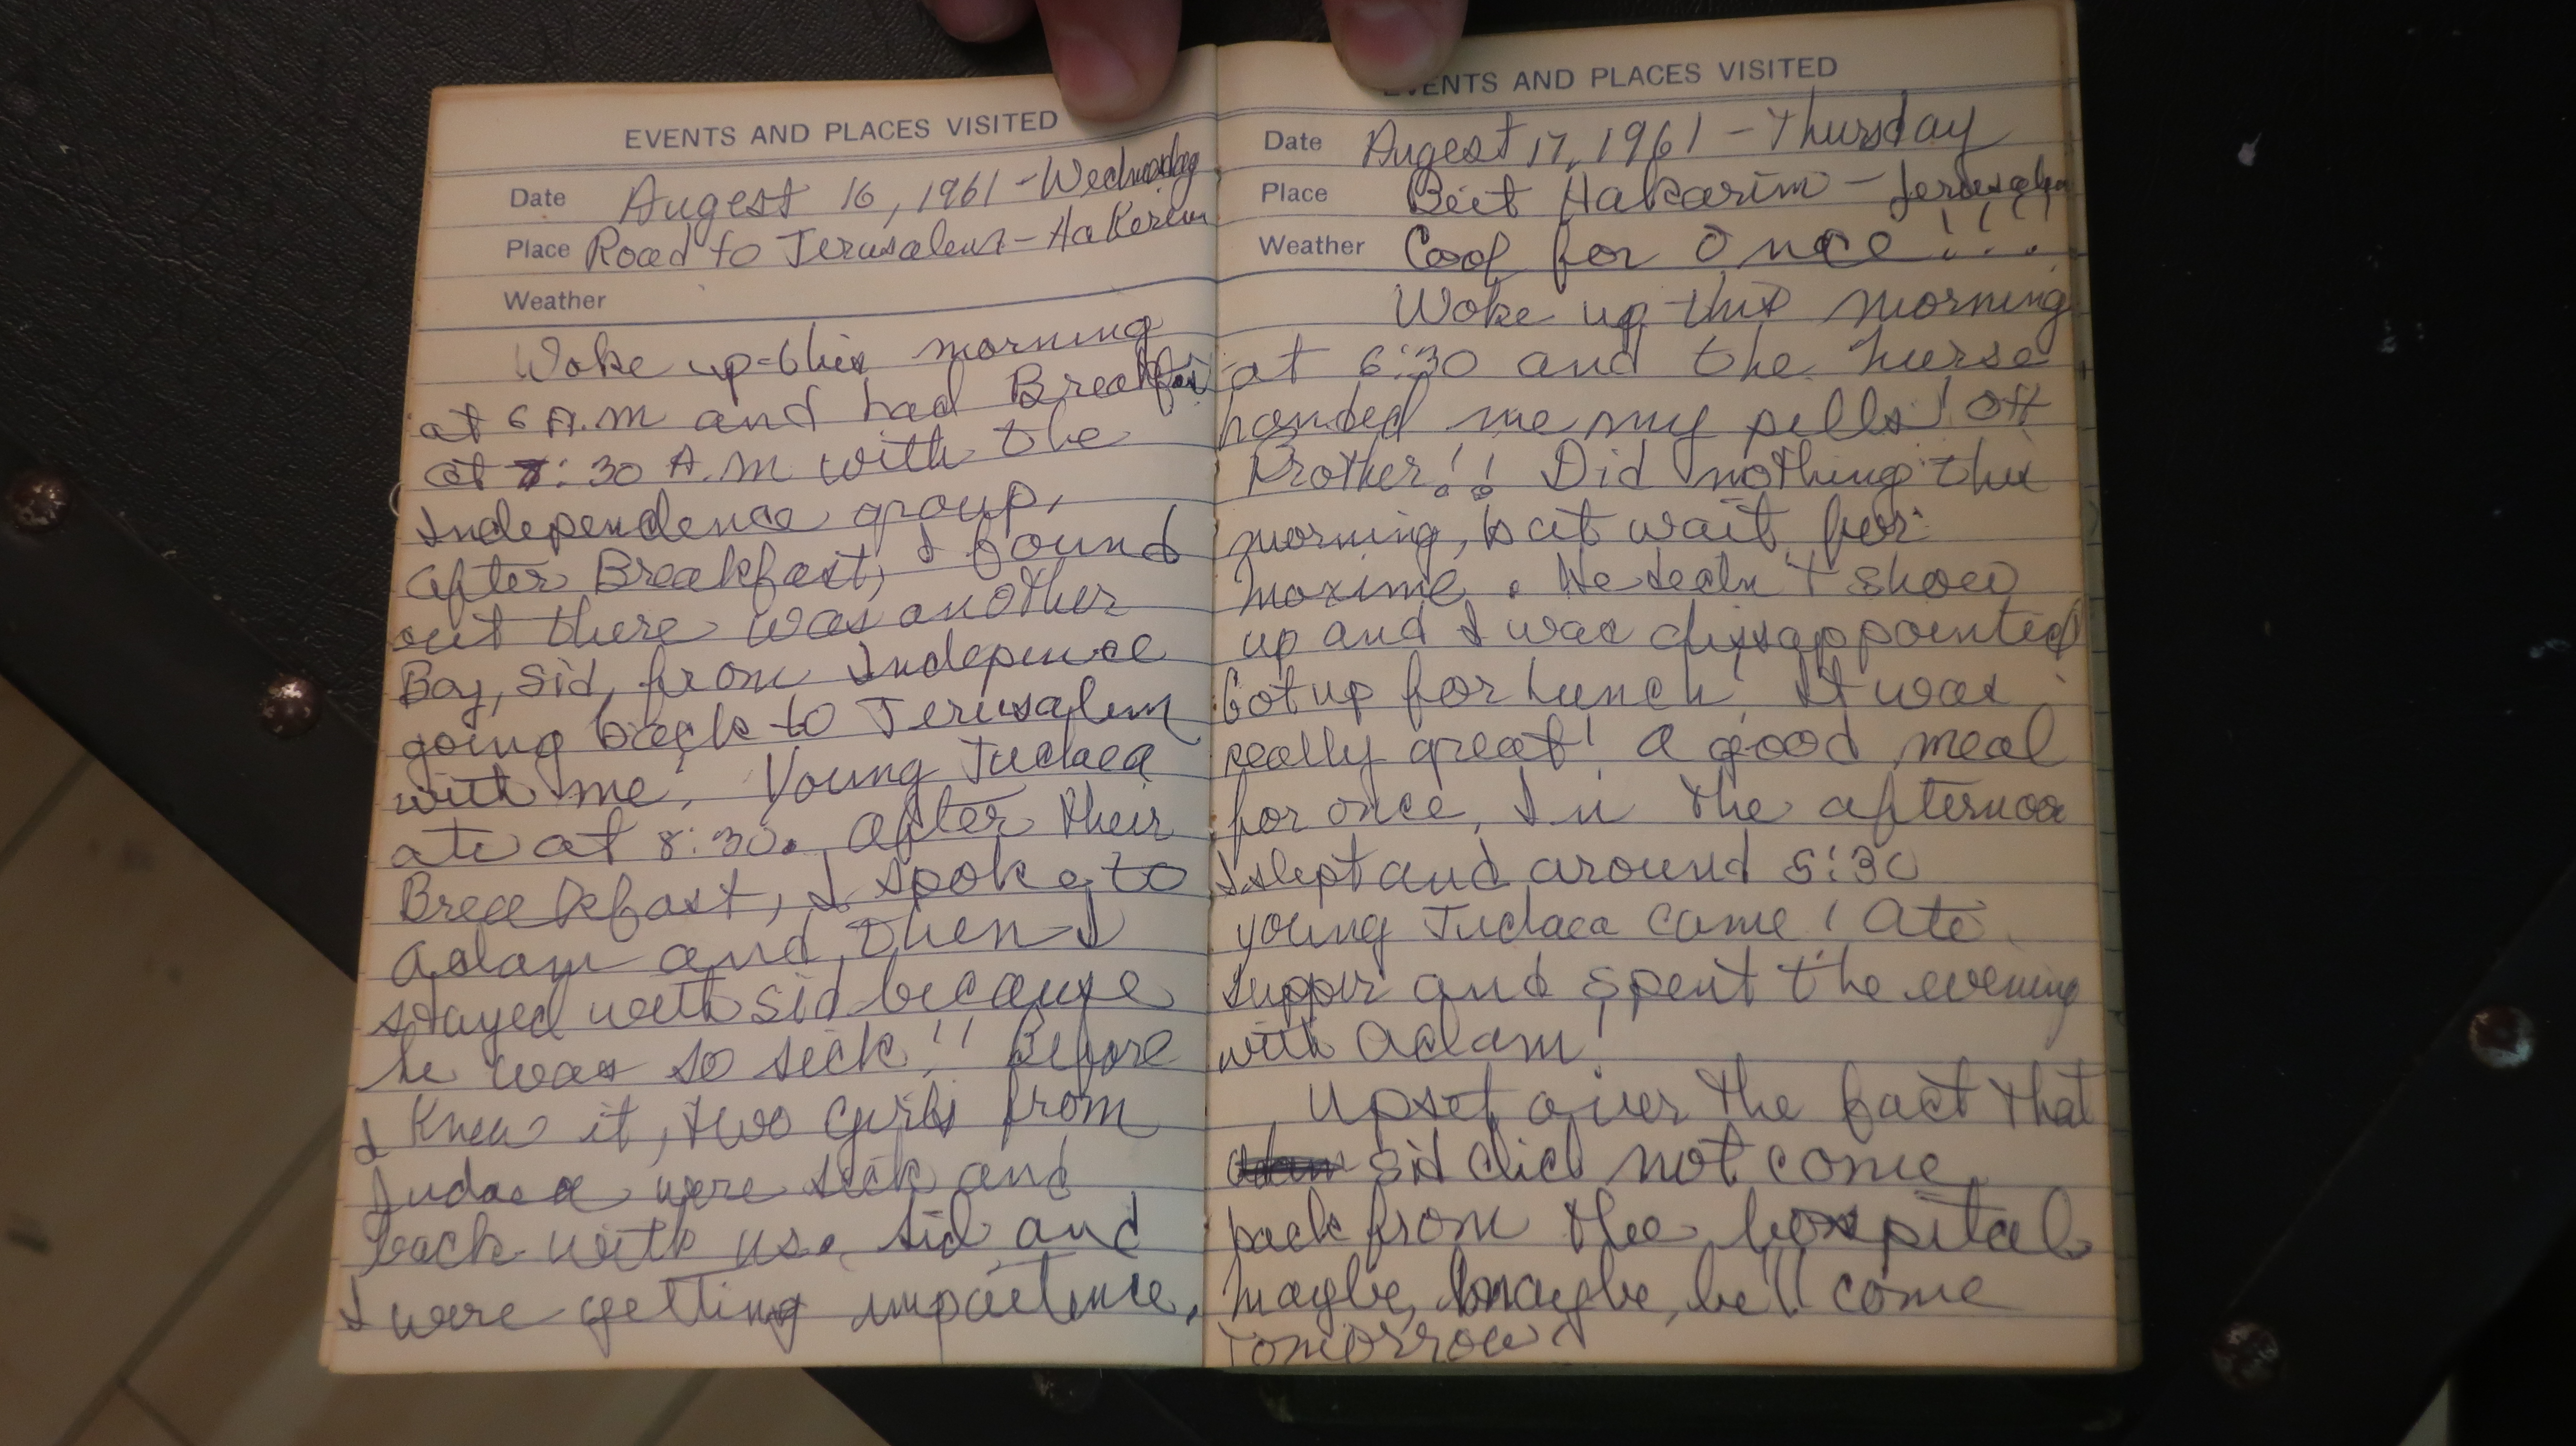 EVENTS AND PLACES VISITED
Date Augest 16, 1961 - Wednesday
Place Road to Jerusalem - HaKerem
Weather
Woke up this morning
at 6 A.M and had Breakfas
at 7:30 A.M with the
Independence group.
After Breakfast, I found
out there was another
Boy, Sid, from Indepence
going back to Jerusalem
with me. Young Judaea
ate at 8:30. After their
Breakfast, I spoke to
Adam and then I
stayed with Sid because
he was so sick!! Before
I knew it, two girls from
Judaea were sick and
back with us. Sid and
I were getting impaitence.
EVENTS AND PLACES VISITED
Date Augest 17, 1961 - Thursday
Place Beit Hakarim - Jerusalem
Weather Cool for Once!!!!
Woke up this morning
at 6:30 and the nurse
handed me my pills! Oh
Brother!! Did nothing this
morning, but wait for
Maxime. He
show
up and I was dissappointed
Got up for Lunch. It was
really great! A good meal
for once. In the afternoo
I slept and around 5:30
young Judaea came! Ate
supper and spent the evening
with Adam!
Upset over the fact that
Sid did not come
back from the hospital
Maybe, maybe, he'll come
Tomorrow.